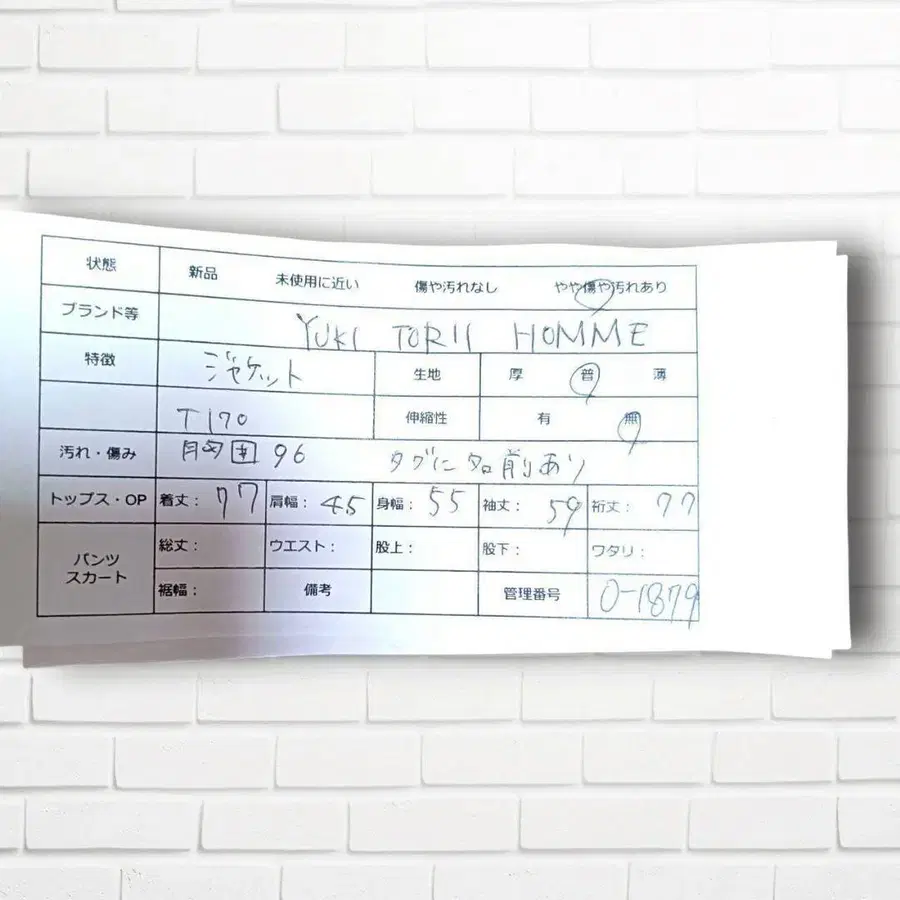 状態 新品 未使用に近い 傷や汚れなし やや傷や汚れあり
ブランド等 YUKI TORII HOMME
特徴 ジャケット 生地 厚 普 薄
T170 伸縮性 有 無
汚れ・傷み 胸囲 96 タグに名前あり
トップス・OP 着丈: 77 肩幅: 45 身幅: 55 袖丈: 59 裄丈: 77
パンツ スカート 総丈: ウエスト: 股上: 股下: ワタリ:
裾幅: 備考 管理番号 0-1879